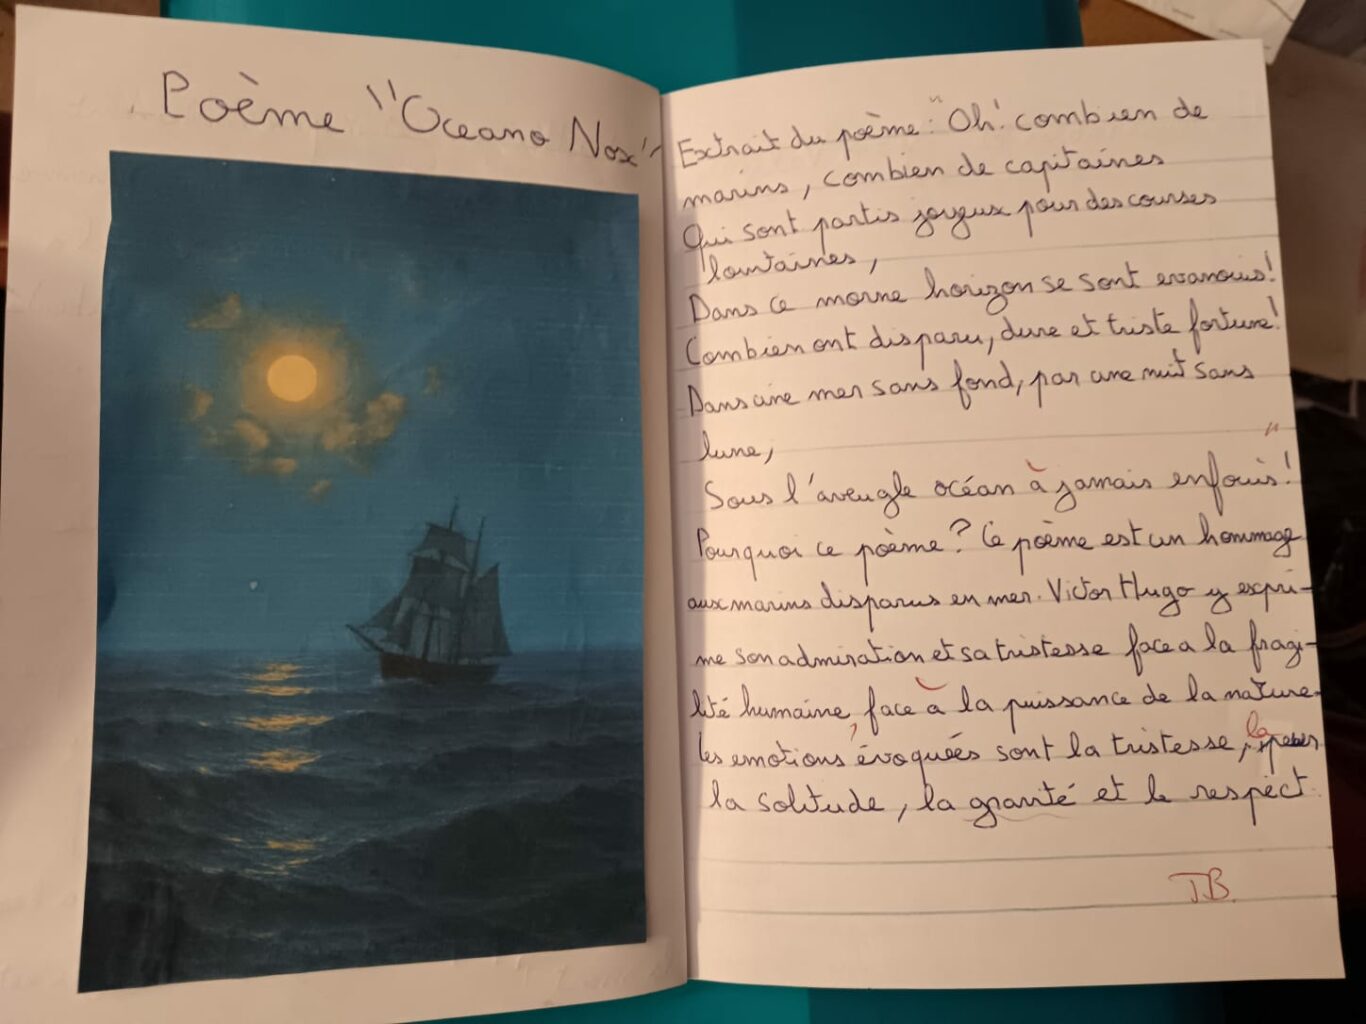 Poème "Oceano Nox"
Extrait du poème: "Oh! combien de
marins, combien de capitaines
Qui sont partis joyeux pour des courses
lointaines,
Dans ce morne horizon se sont evanouis!
Combien ont disparu, dure et triste fortune!
Dans une mer sans fond, par une nuit sans
lune,
Sous l'aveugle océan à jamais enfouis"!
Pourquoi ce poème? Ce poème est un hommage
aux marins disparus en mer. Victor Hugo y expri-
me son admiration et sa tristesse face a la fragi-
lité humaine, face à la puissance de la nature.
les emotions évoquées sont la tristesse, la peur
la solitude, la gravité et le respect.
TB.